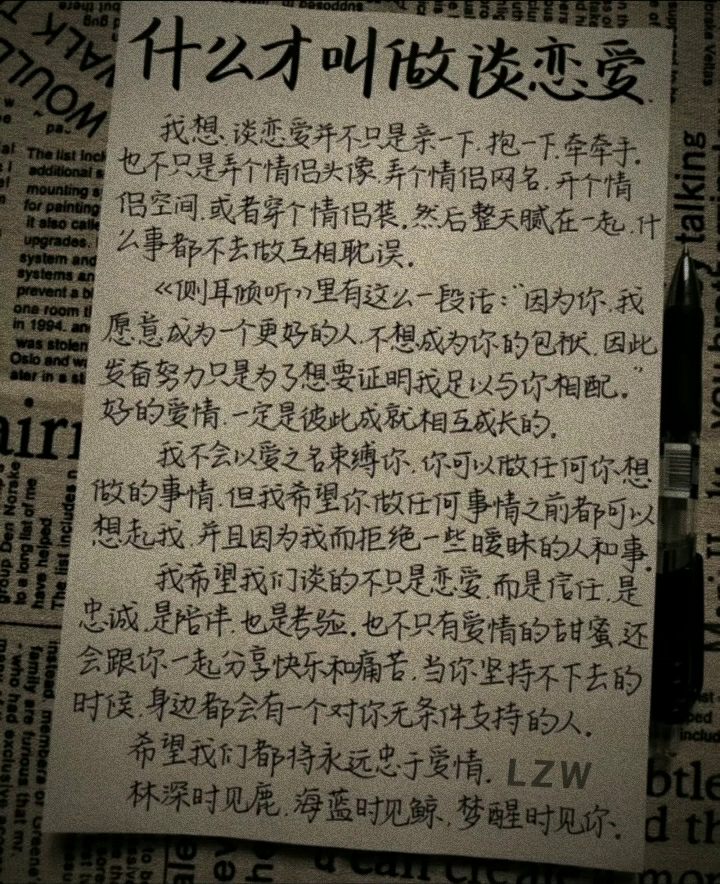 什么才叫做谈恋爱
我想,谈恋爱并不只是亲一下,抱一下,牵牵手,
也不只是弄个情侣头像,弄个情侣网名,开个情
侣空间,或者穿个情侣装,然后整天腻在一起,什
么事都不去做互相耽误。
《侧耳倾听》里有这么一段话:“因为你,我
愿意成为一个更好的人,不想成为你的包袱,因此
发奋努力只是为了想要证明我足以与你相配。”
好的爱情,一定是彼此成就相互成长的。
我不会以爱之名束缚你,你可以做任何你想
做的事情,但我希望你做任何事情之前都可以
想起我,并且因为我而拒绝一些暧昧的人和事。
我希望我们谈的不只是恋爱,而是信任,是
忠诚,是陪伴,也是考验。也不只有爱情的甜蜜,还
会跟你一起分享快乐和痛苦,当你坚持不下去的
时候,身边都会有一个对你无条件支持的人。
希望我们都将永远忠于爱情。 LZW
林深时见鹿,海蓝时见鲸,梦醒时见你。
WOULD
WALK T
The list incl
additional s
mounting s
for painting
it also calle
upgrades.
system and
systems an
prevent a bl
one room tl
in 1994. an
was stolen
Oslo and wa
ater in a st
airi
group Den Norske
to a long list of me
have helped
The list includes n
instead, members of Greene'
family are furious that mr.
who had exclusive
talking
btle
d th
u can create a mor